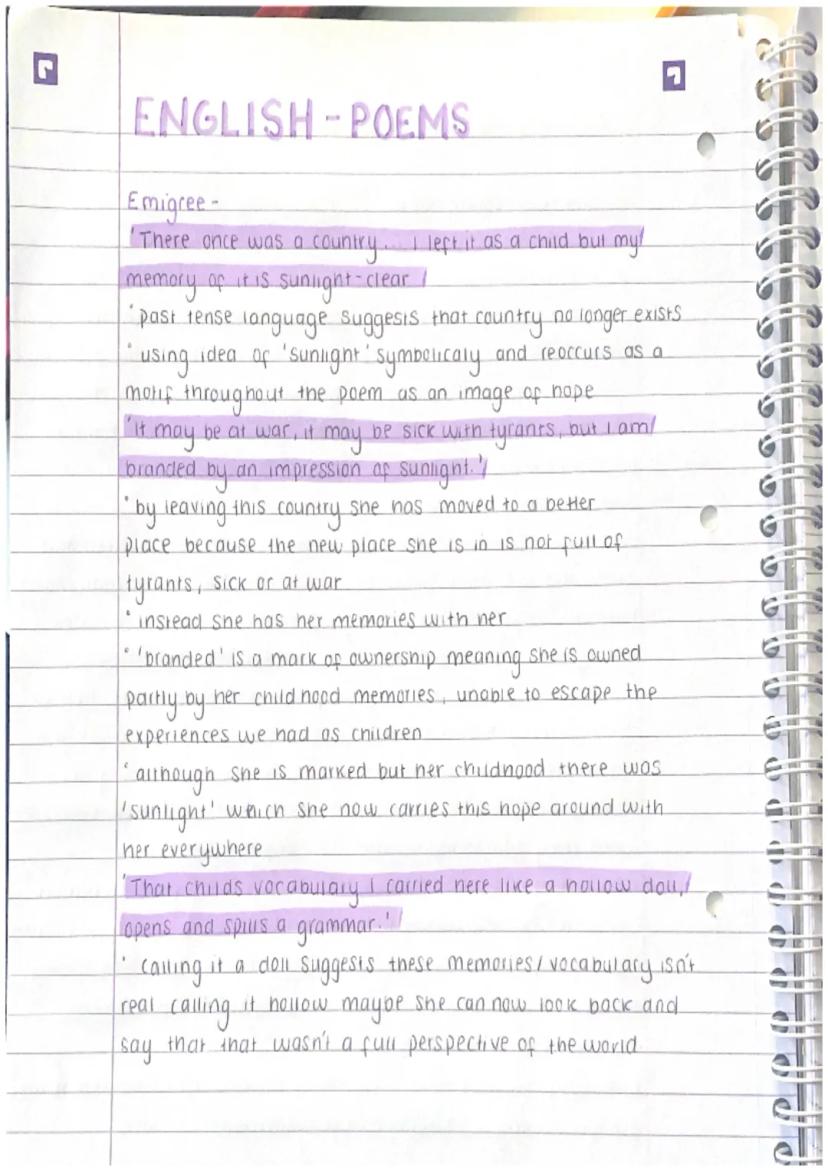 ENGLISH - POEMS
Emigree -
'There once was a country... I left it as a child but my
memory of it is sunlight-clear'
• past tense language suggests that country no longer exists
• using idea of 'sunlight' symbolicaly and reoccurs as a
motif throughout the poem as an image of hope
'It may be at war, it may be sick with tyrants, but I am
branded by an impression of sunlight.'
• by leaving this country she has moved to a better
place because the new place she is in is not full of
tyrants, sick or at war
• instead she has her memories with her
• 'branded' is a mark of ownership meaning she is owned
partly by her childhood memories, unable to escape the
experiences we had as children
• although she is marked but her childhood there was
'sunlight' which she now carries this hope around with
her everywhere
'That childs vocabulary I carried here like a hollow doll,
opens and spills a grammar.'
• calling it a doll suggests these memories/vocabulary isn't
real calling it hollow maybe she can now look back and
say that that wasn't a full perspective of the world